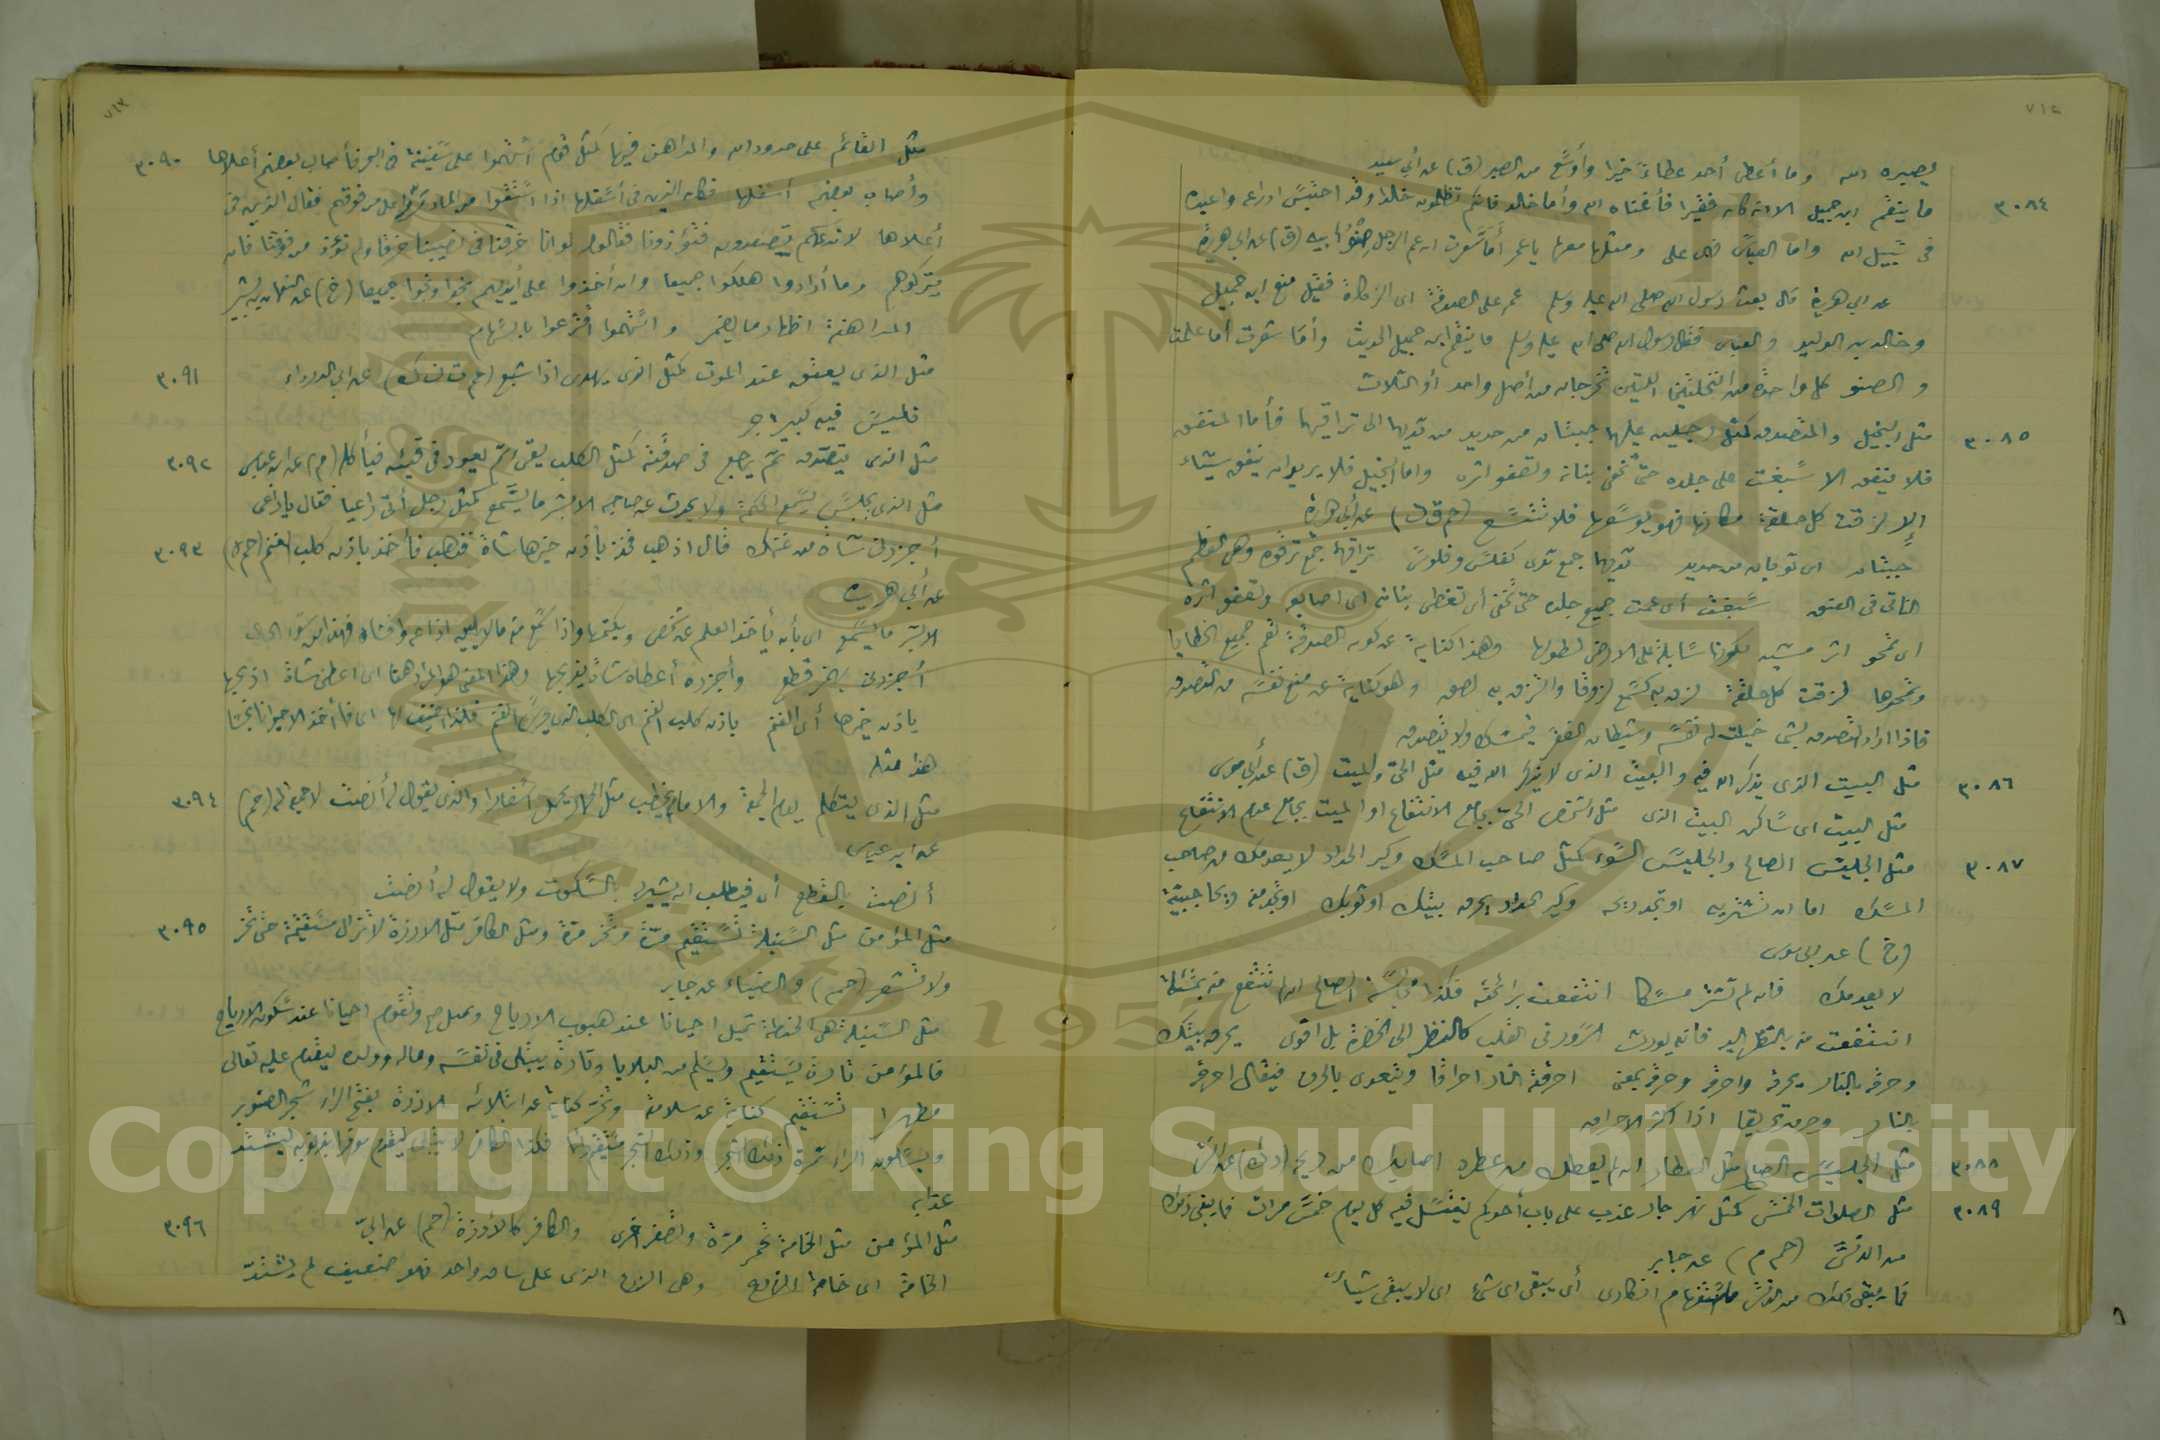 ٧١٢
يصبره الله وما أعطى أحد عطاءً خيرا وأوسع من الصبر (ق) عن أبي سعيد
٣٠٨٤ ما ينقم ابن جميل الا انه كان فقيرا فأغناه الله وأما خالد فانكم تظلمون خالدا وقد احتبس ادراعه واعبده
في سبيل الله واما العباس فهى على ومثلها معها يا عمر أما شعرت ان عم الرجل صنو أبيه (ق) عن ابي هريرة
عن ابي هريرة قال بعث رسول الله صلى الله عليه وسلم عمر على الصدقة اى الزكاة فقيل منع ابن جميل
وخالد بن الوليد والعباس فقال رسول الله صلى الله عليه وسلم ما ينقم ابن جميل الحديث وأما شعرت أما علمت
والصنو كل واحدة من النخلتين اللتين تخرجان من أصل واحد أو الثلاث
٣٠٨٥ مثل البخيل والمتصدق كمثل رجلين عليهما جبتان من حديد من ثديهما الى تراقيهما فأما المنفق
فلا ينفق الا سبغت على جلده حتى تخفى بنانه وتعفو اثره واما البخيل فلا يريد ان ينفق شيئاء
إلا لزقت كل حلقة مكانها فهو يوسعها فلا تتسع (حم ق ن) عن أبي هريرة
جبتان اى ثوبان من حديد ثديهما جمع ثدى كفلس وفلوس تراقيهما جمع ترقوة وهى العظم
الناتى فى العنق سبغت أى عمت جميع جلده حتى تخفى أى تغطى بنانه اى اصابعه وتعفو اثره
اى تمحو اثر مشيه لكونها سابلة على الارض لطولها وهذا كناية عن كون الصدقة تعم جميع الخطايا
وتمحوها لزقت كل حلقة لزق به كسمع لزوقا والتزق به لصق وهو كناية عن منع نفسه من التصدق
فاذا اراد التصدق بشى خيلت له نفسه وشيطانه الفقر فيمسك ولا يتصدق
٣٠٨٦ مثل البيت الذى يذكر الله فيه والبيت الذى لا يذكر الله فيه مثل الحى والميت (ق) عن أبي موسى
مثل البيت اى ساكن البيت الذى مثل الشخص الحى بجامع الانتفاع او الميت بجامع عدم الانتفاع
٣٠٨٧ مثل الجليس الصالح والجليس السوء كمثل صاحب المسك وكير الحداد لا يعدمك من صاحب
المسك اما ان تشتريه او تجد ريحه وكير الحداد يحرق بيتك او ثوبك او تجد منه ريحا خبيثة
(خ) عن ابى موسى
لا يعدمك فانه لم تشتر مسكا انتفعت برائحته فكذا مجالسة الصالح
انتفعت منه بالنظر اليه فانه يورث السرور فى القلب كالنظر الى الخضرة بل اقوى يحرق بيتك
وحرقه بالنار يحرقه واحرقه وحرقه بمعنى احرقته النار احراقا ويتعدى بالحرف فيقال احرقه
بالنار وحرقه تحريقا اذا اكثر الاحراق
٣٠٨٨ مثل الجليس الصالح مثل العطار ان لم يعطك من عطره اصابك من ريحه (د ك) عن انس
٣٠٨٩ مثل الصلوات الخمس كمثل نهر جار عذب على باب أحدكم يغتسل فيه كل يوم خمس مرات فما يبقى ذلك
من الدنس (حم م) عن جابر
فما يبقى ذلك من الدنس ما استفهام انكارى أى يبقى اى شئ اى لا يبقى شيئاء
٧١٣
٣٠٩٠ مثل القائم على حدود الله والمداهن فيها كمثل قوم استهموا على سفينة فى البحر فأصاب بعضهم أعلاها
وأصاب بعضهم أسفلها فكان الذين فى أسفلها اذا استقوا من الماء مروا على من فوقهم فقال الذين فى
أعلاها لا ندعكم تصعدون فتؤذوننا فقالوا لو انا خرقنا فى نصيبنا خرقا ولم نؤذ من فوقنا فان
يتركوهم وما أرادوا هلكوا جميعا وان أخذوا على أيديهم نجوا ونجوا جميعا (خ) عن النعمان بن بشير
المداهنة اظهار ما يضمر واستهموا اقترعوا بالسهام
٣٠٩١ مثل الذى يعتق عند الموت كمثل الذى يهدى اذا شبع (حم ت ن ك) عن ابي الدرداء
فليس فيه كبير اجر
٣٠٩٢ مثل الذى يتصدق ثم يرجع فى صدقته كمثل الكلب يقى ثم يعود فى قيئه فيأكله (م) عن ابن عباس
مثل الذى يجلس يسمع الحكمة ولا يحدث عن صاحبه الا بشر ما يسمع كمثل رجل أتى راعيا فقال يا راعى
٣٠٩٣ أجزرنى شاة من غنمك قال اذهب فخذ بأذن خيرها شاة فذهب فأخذ باذن كلب الغنم (حم ه)
عن أبي هريرة
أجزرنى وأجزره أعطاه شاة يذبحها وهذا المعنى هو المراد هنا اى اعطنى شاة اذبحها
باذن خيرها أى الغنم باذن كلب الغنم اى الكلب الذى يحرس الغنم
هذا مثله
٣٠٩٤ مثل الذى يتكلم يوم الجمعة والامام يخطب مثل الحمار يحمل أسفارا والذى يقول له أنصت لا جمعة له (حم)
عن ابن عباس
أنصت بالقطع أى فيطلب ان يشير له بالسكوت ولا يقول له أنصت
٣٠٩٥ مثل المؤمن مثل السنبلة تستقيم مرة وتخر مرة ومثل الكافر مثل الارزة لا تزال مستقيمة حتى تخر
ولا تشعر (حم) والضياء عن جابر
مثل السنبلة هى الحنطة تميل احيانا عند هبوب الارياح وتقوم احيانا عند سكون الارياح
فالمؤمن تارة يستقيم ويسلم من البلايا وتارة يبتلى فى نفسه وماله وولده ليقدم عليه تعالى
مطهرا تستقيم كناية عن سلامته وتخر كناية عن ابتلائه الارزة بفتح الراء شجر الصنوبر
عذابه
٣٠٩٦ مثل المؤمن مثل الخامة تحمر مرة وتصفر اخرى والكافر كالأرزة (حم) عن ابىّ
الخامة اى خامة الزرع وهى الزرع الذى على ساق واحد فهو ضعيف لم يشتدّ
Copyright © King Saud University
1957